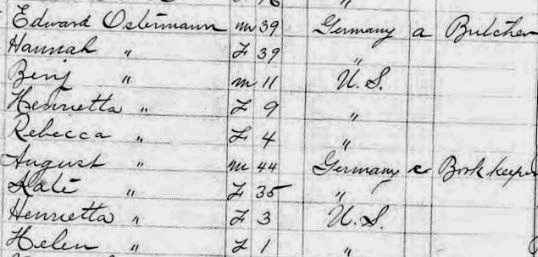 16 "
Edward Ostermann m 39 Germany a Butcher
Hannah " F 39 "
Benj " m 11 U.S.
Henrietta " F 9 "
Rebecca " F 4 "
August " m 44 Germany c Book keeper
Kate " F 35 "
Henrietta " F 3 U.S.
Helen " F 1 "